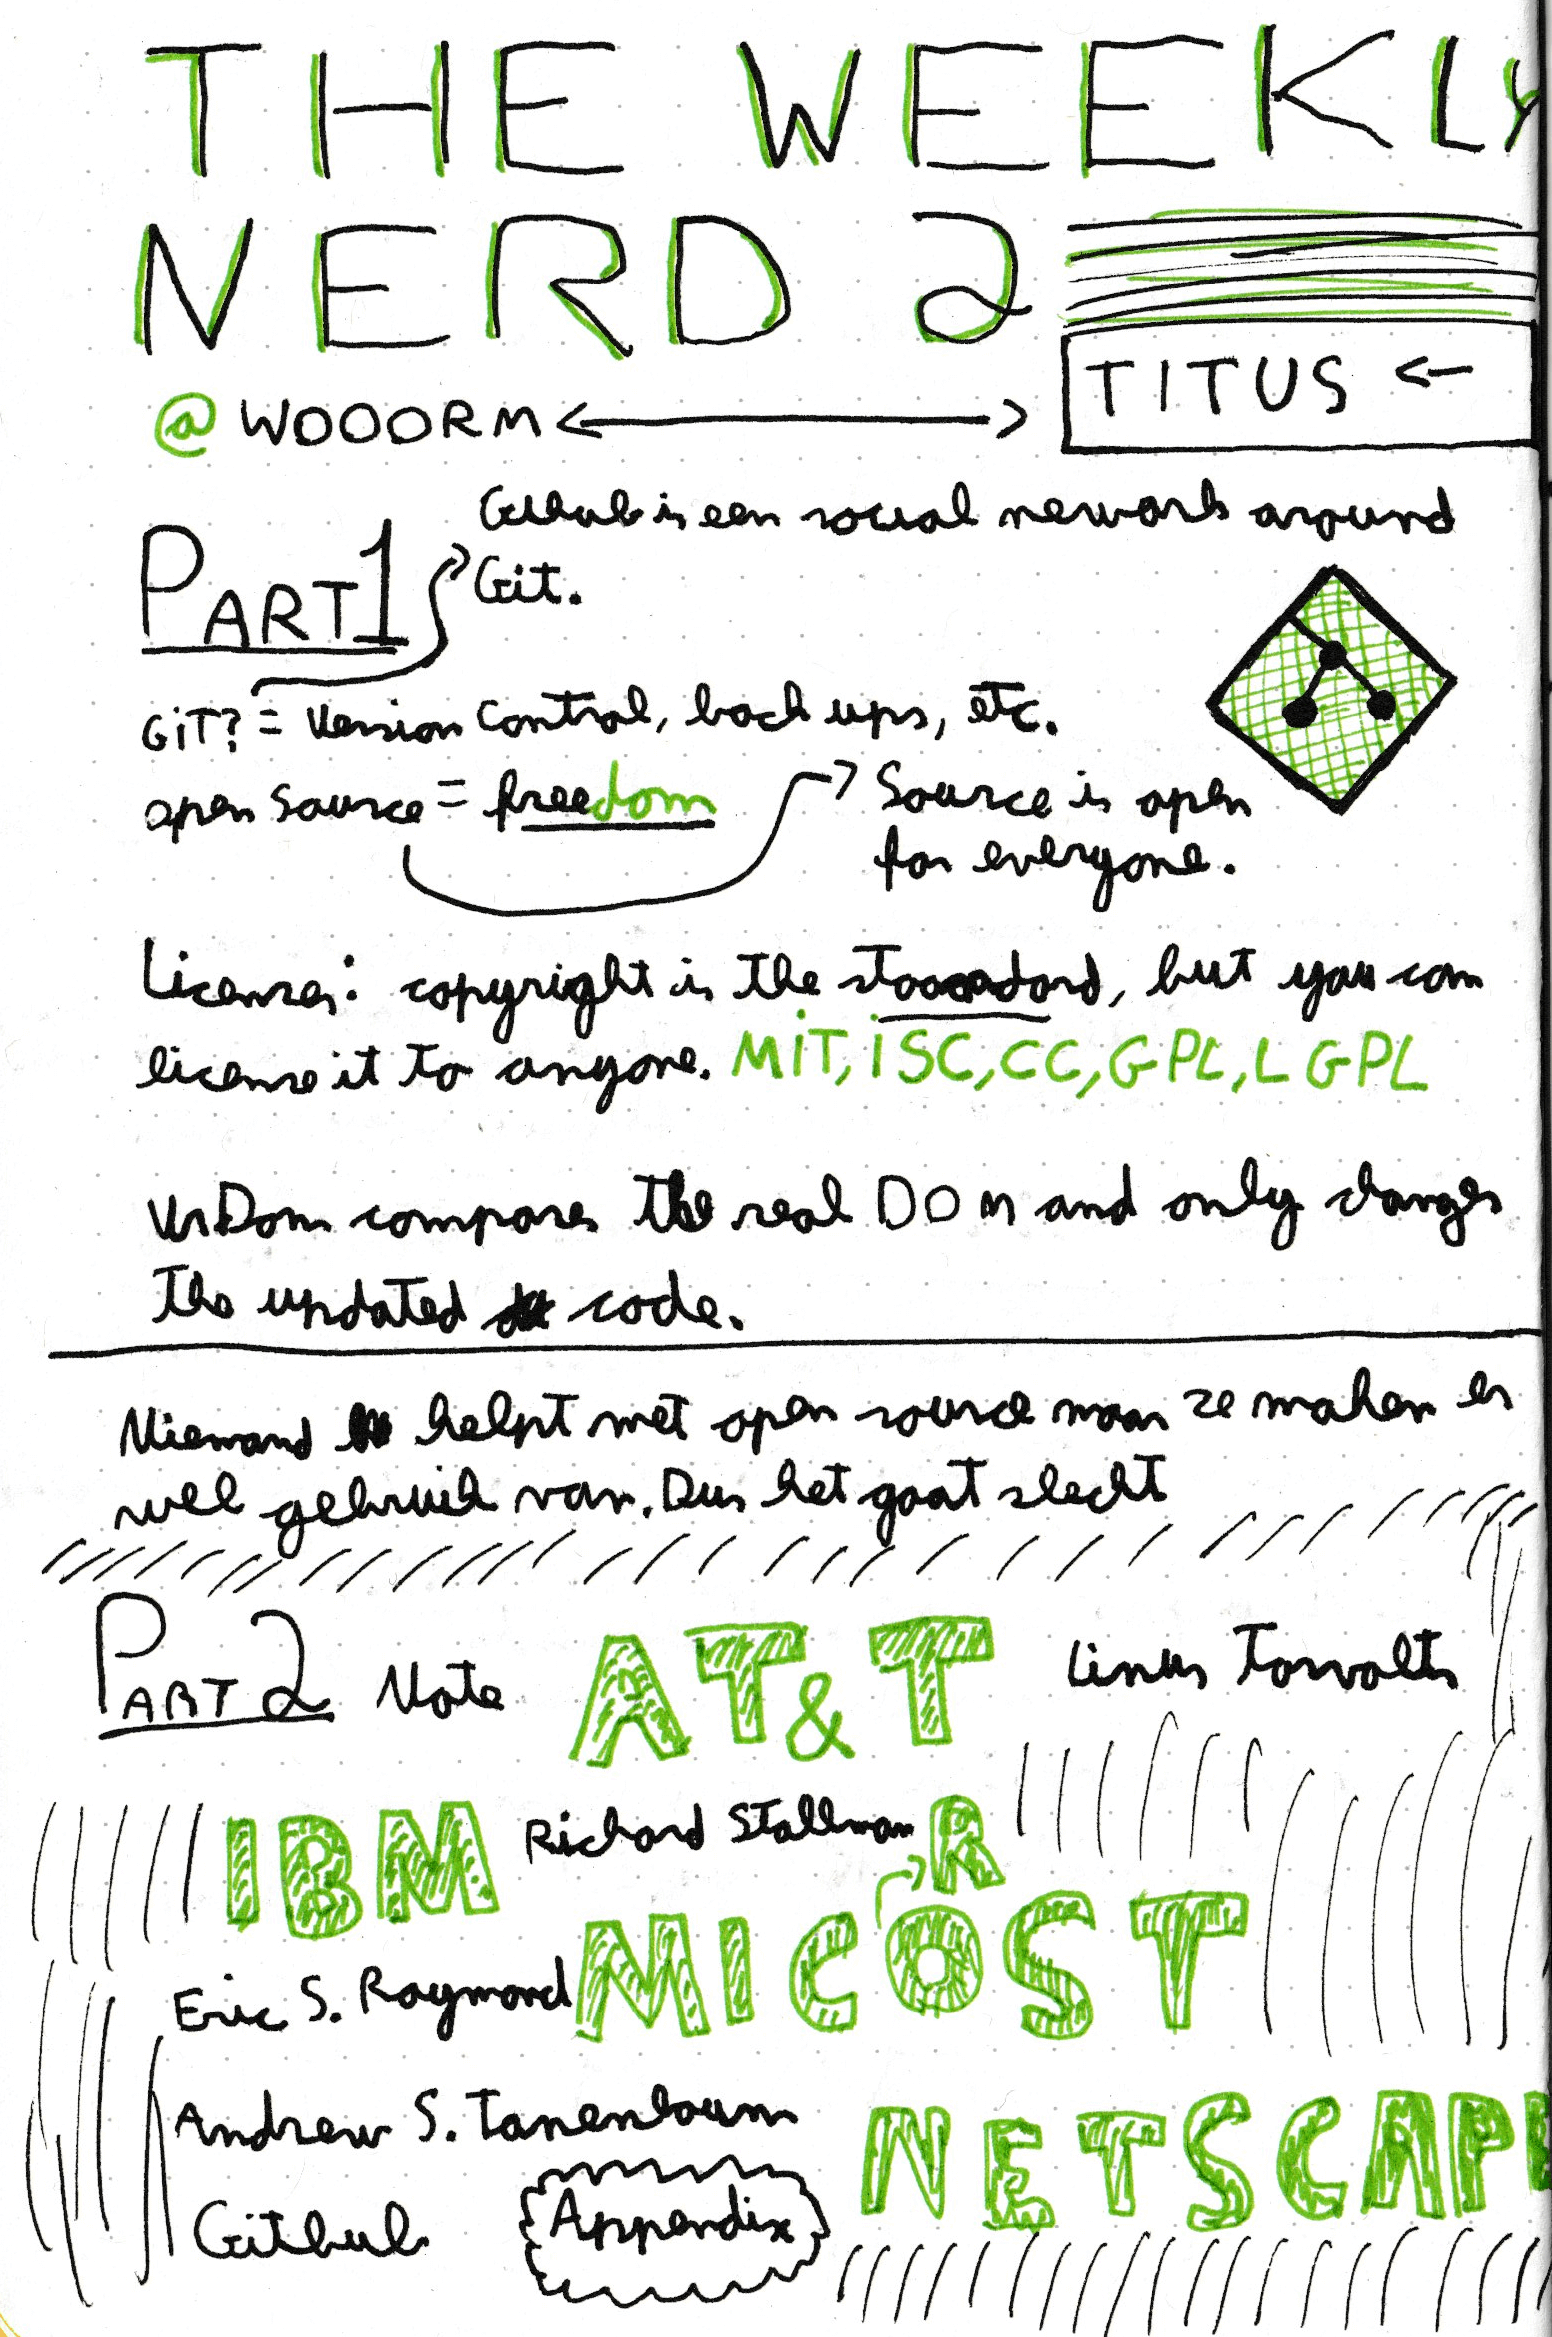 THE WEEKLY
NERD 2
TITUS ←
@WOOORM <——>
Github is een social nework around
Git.
PART 1
GiT? = Version Control, back ups, etc.
open Source = freedom
Source is open
for everyone.
Licenses: copyright is the standard, but you can
license it to anyone. MiT, iSC, CC, GPL, LGPL
VirDom compares the real DOM and only changes
the updated code.
Niemand helpt met open source maar ze maken er
wel gebruik van. Dus het gaat slecht
PART 2 Note AT&T Linus Torvalts
IBM Richard Stallman R
MICOST
Eric S. Raymond
Andrew S. Tanenbaum
NETSCAPE
Github Appendix